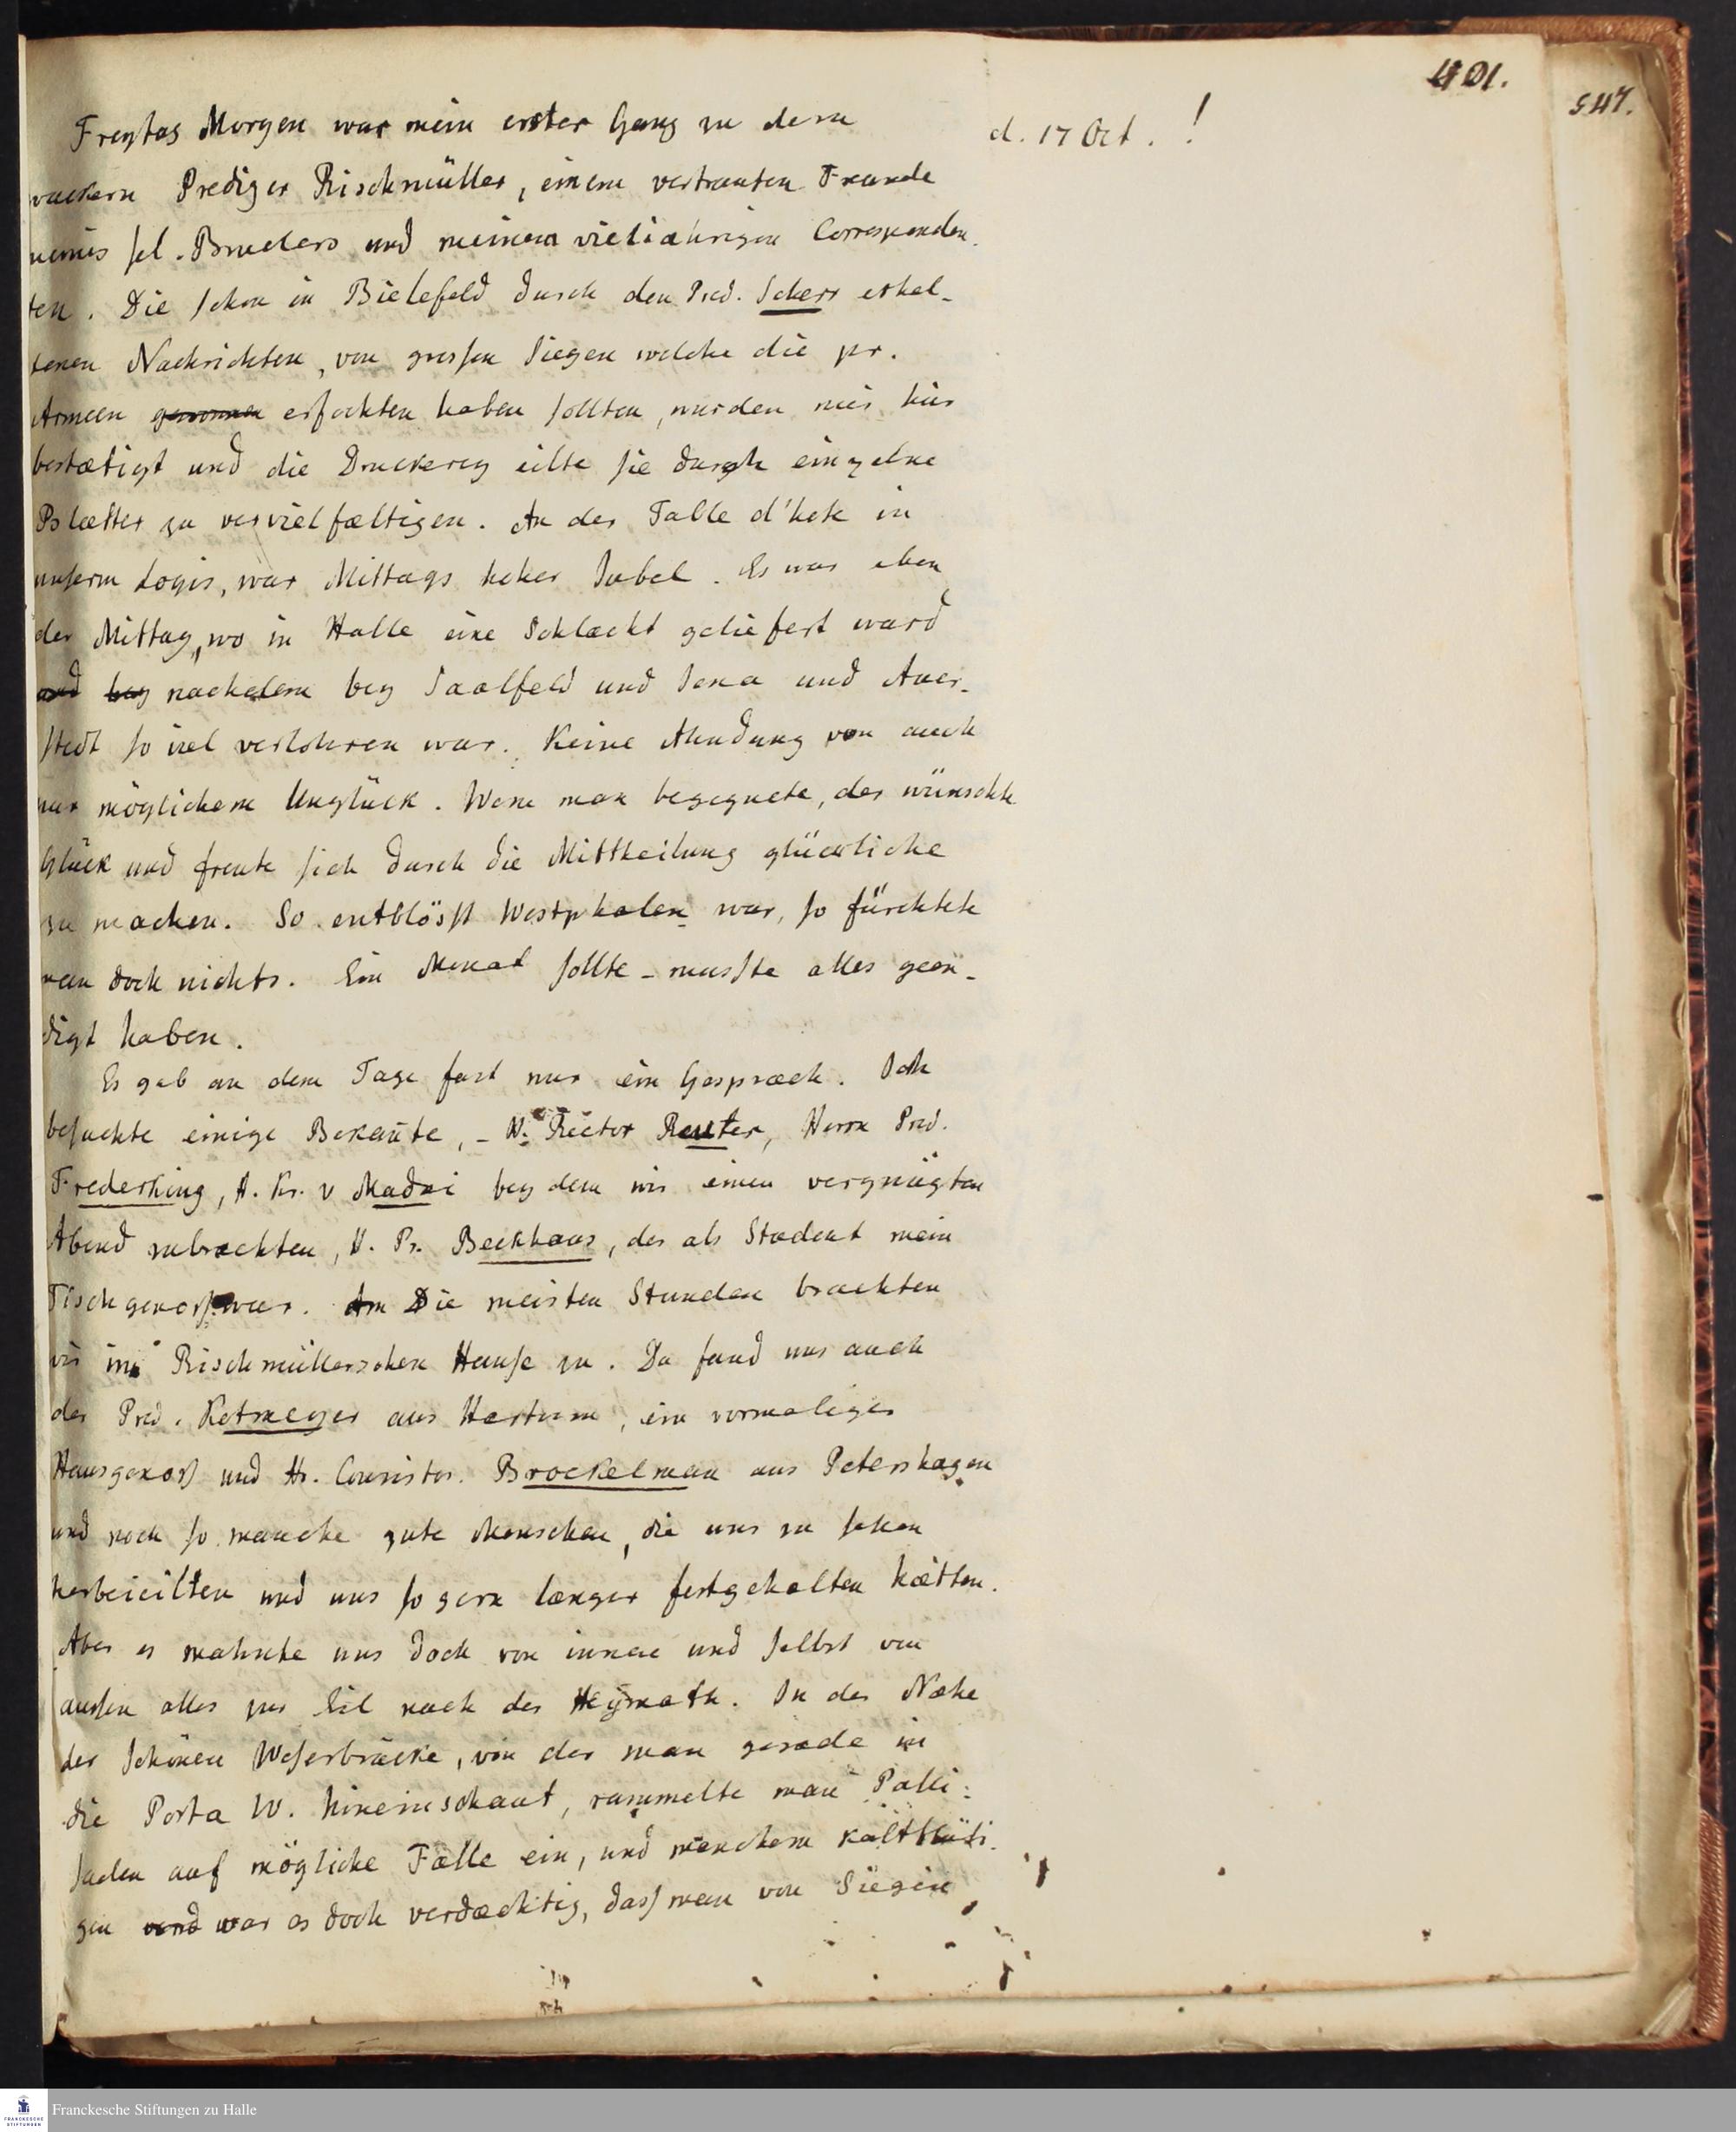 401.
547.
d. 17 Oct. !
Freytag Morgen war mein erster Gang zu dem
wackern Prediger Rischmüller, einem vertrauten Freunde
meines sel. Bruders und meinem vieljährigen Corresponden-
ten. Die schon in Bielefeld durch den Pred. Scherr erhal-
tenen Nachrichten, von grossen Siegen welche die pr.
Armeen gewonnen erfochten haben sollten, wurden mir hier
bestætigt und die Druckerey eilte sie durch einzelne
Blætter zu vervielfæltigen. An der Table d'hote in
unserm Logis, war Mittags hoher Jubel. Es war eben
der Mittag, wo in Halle eine Schlacht geliefert ward
und bey nachdem bey Saalfeld und Jena und Auer-
stedt so viel verlohren war. Keine Ahndung von auch
nur möglichem Unglück. Wem man begegnete, der wünschte
Glück und freute sich durch die Mittheilung glückliche
zu machen. So entblösst Westphalen war, so fürchtete
man doch nichts. Ein Monat sollte - musste alles geen-
digt haben.
Es gab an dem Tage fast nur ein Gespræch. Ich
besuchte einige Bekañte, - H. Rector Reuter, Herrn Pred.
Frederking, H. Kr. v Madai bey dem wir einen vergnügten
Abend zubrachten, H. Pr. Beckhaus, der als Student mein
Tischgenoss war. Am Die meisten Stunden brachten
wir im Rischmüllerschen Hause zu. Da fand uns auch
der Pred. Rotmeyer aus Hartum, ein vormaliger
Hausgenoss und Hr. Consistor. Brockelman aus Petershagen
und noch so manche gute Menschen, die uns zu sehen
herbeieilten und uns so gern länger festgehalten hætten.
Aber es mahnte uns doch von innen und selbst von
aussen alles zur Eil nach der Heymath. In der Nähe
der schönen Weserbrücke, von der man gerade in
die Porta W. hineinschaut, rammelte man Palli-
saden auf mögliche Fälle ein, und manchem kaltblüti-
gen war es doch verdæchtig, dass man von Siegen
Franckesche Stiftungen zu Halle